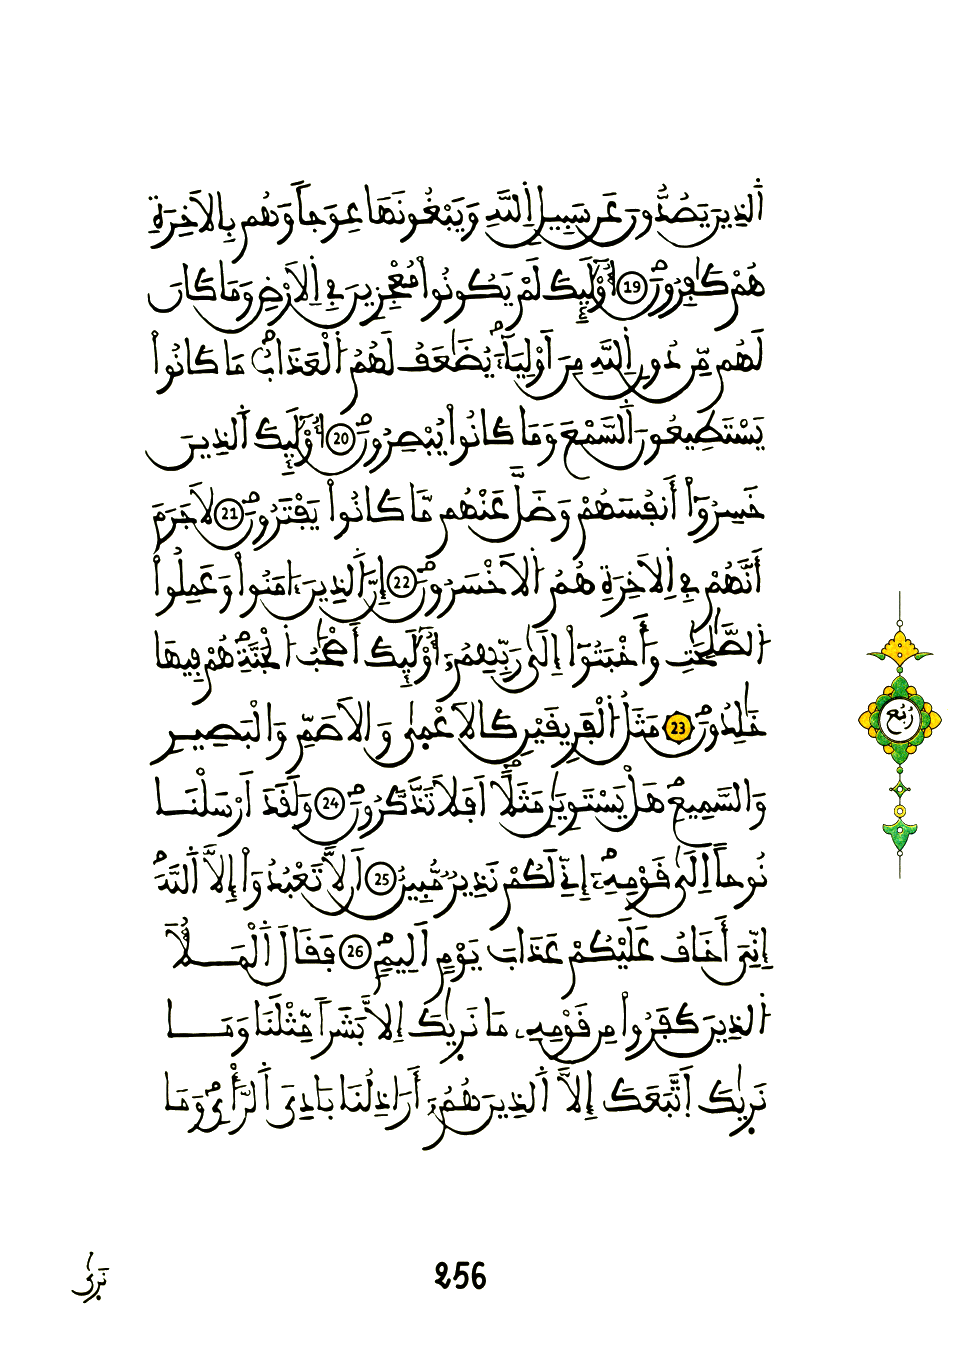 اَ۬لذِينَ يَصُدُّونَ عَن سَبِيلِ اِ۬للَّهِ وَيَبْغُونَهَا عِوَجاٗ وَهُم بِالَاخِرَةِ
هُمْ كَٰفِرُونَۖ 19 أُوْلَٰٓئِكَ لَمْ يَكُونُواْ مُعْجِزِينَ فِے اِ۬لَارْضِ وَمَا كَانَ
لَهُم مِّن دُونِ اِ۬للَّهِ مِنَ اَوْلِيَآءَۖ يُضَٰعَفُ لَهُمُ اُ۬لْعَذَابُۖ مَا كَانُواْ
يَسْتَطِيعُونَ اَ۬لسَّمْعَ وَمَا كَانُواْ يُبْصِرُونَۖ 20 أُوْلَٰٓئِكَ اَ۬لذِينَ
خَسِرُوٓاْ أَنفُسَهُمْ وَضَلَّ عَنْهُم مَّا كَانُواْ يَفْتَرُونَۖ 21 لَا جَرَمَ
أَنَّهُمْ فِے اِ۬لَاخِرَةِ هُمُ اُ۬لَاخْسَرُونَۖ 22 إِنَّ اَ۬لذِينَ ءَامَنُواْ وَعَمِلُواْ
اُ۬لصَّٰلِحَٰتِ وَأَخْبَتُوٓاْ إِلَىٰ رَبِّهِمُۥٓ أُوْلَٰٓئِكَ أَصْحَٰبُ اُ۬لْجَنَّةِۖ هُمْ فِيهَا
خَٰلِدُونَۖ 23 مَثَلُ اُ۬لْفَرِيقَيْنِ كَالَاعْمَىٰ وَالَاصَمِّ وَالْبَصِيرِ
وَالسَّمِيعِۖ هَلْ يَسْتَوِيَٰنِ مَثَلًاۖ اَفَلَا تَذَّكَّرُونَۖ 24 وَلَقَدَ اَرْسَلْنَا
نُوحاً اِلَىٰ قَوْمِهِۦٓۖ إِنِّے لَكُمْ نَذِيرٞ مُّبِينٌ 25 اَن لَّا تَعْبُدُوٓاْ إِلَّا اَ۬للَّهَۖ
إِنِّيَ أَخَافُ عَلَيْكُمْ عَذَابَ يَوْمٍ اَلِيمٖۖ 26 فَقَالَ اَ۬لْمَلَأُ
اُ۬لذِينَ كَفَرُواْ مِن قَوْمِهِۦ مَا نَر۪يٰكَ إِلَّا بَشَراٗ مِّثْلَنَا وَمَا
نَر۪يٰكَ اَ۪تَّبَعَكَ إِلَّا اَ۬لذِينَ هُمُۥٓ أَرَاذِلُنَا بَادِيَ اَ۬لرَّأْيِۖ وَمَا
رُبُع
نَر۪ىٰ
256